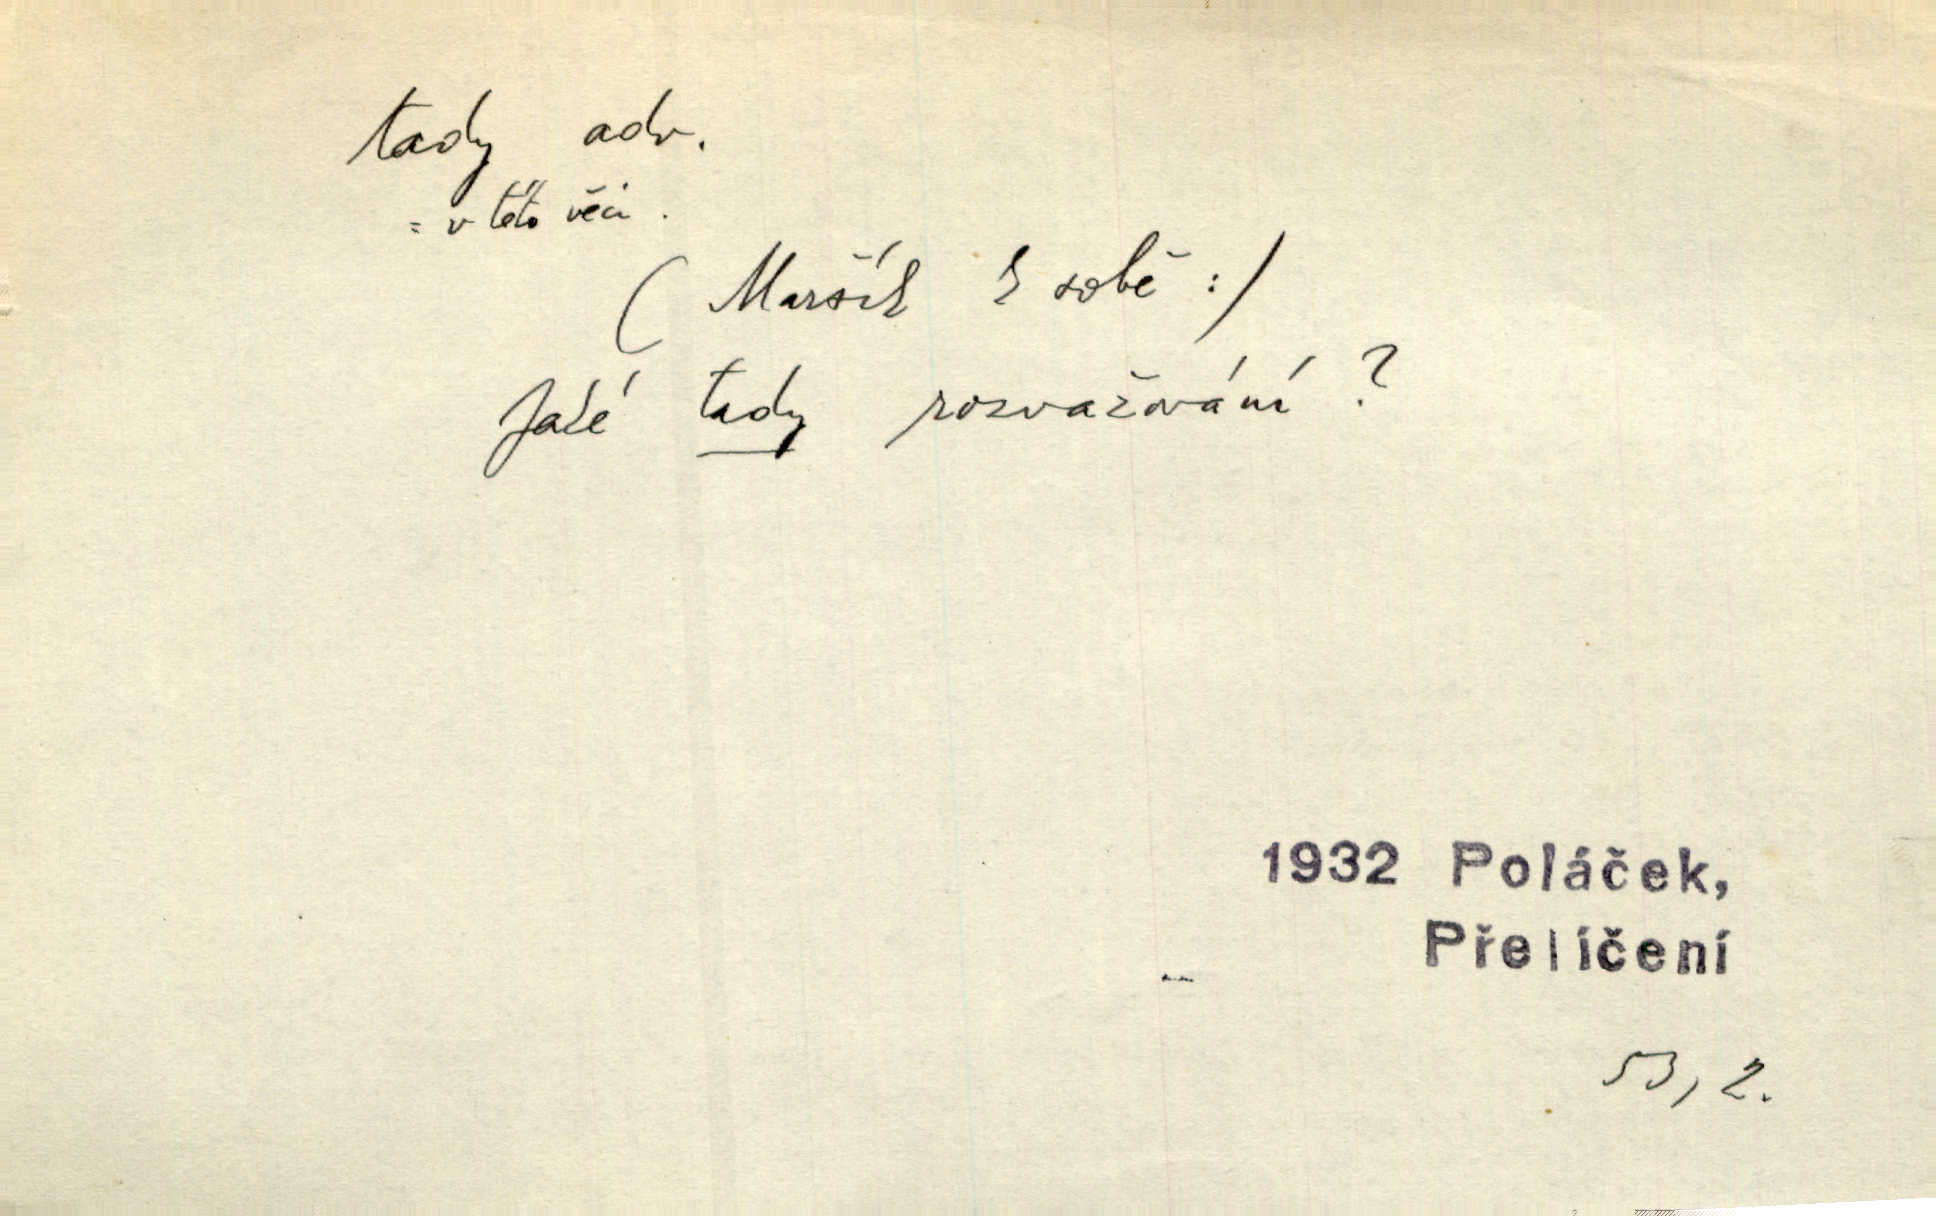 tady adv.
= v této věci.
(Maršík k sobě:)
Jaké tady rozvažování?
1932 Poláček,
Přelíčení
53, 2.